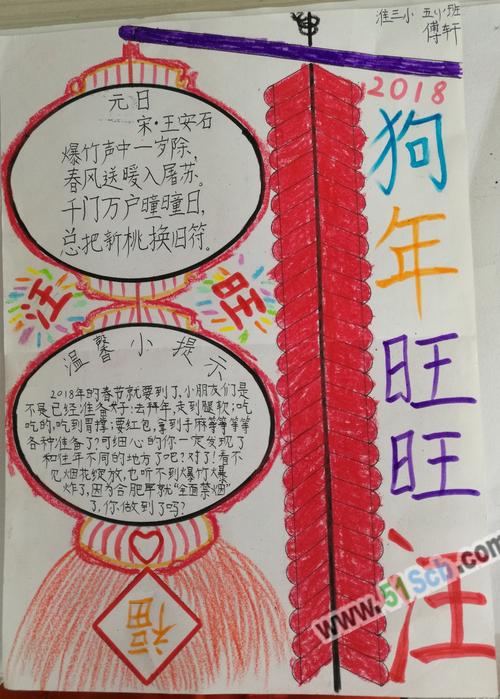 淮三小 五(小)班
傅轩
2018
狗年旺旺汪
元日
宋·王安石
爆竹声中一岁除,
春风送暖入屠苏。
千门万户曈曈日,
总把新桃换旧符。
汪
旺
温馨小提示
2018年的春节就要到了,小朋友们是
不是已经准备好:去拜年,走到腿软;吃
吃的,吃到胃撑;要红包,拿到手麻等等等等
各种准备了?可细心的你一定发现了
和往年不同的地方了吧?对了!看不
见烟花绽放,也听不到爆竹大爆
炸了,因为合肥早就“全面禁烟”
了,你做到了吗?
福
www.51Scb.com